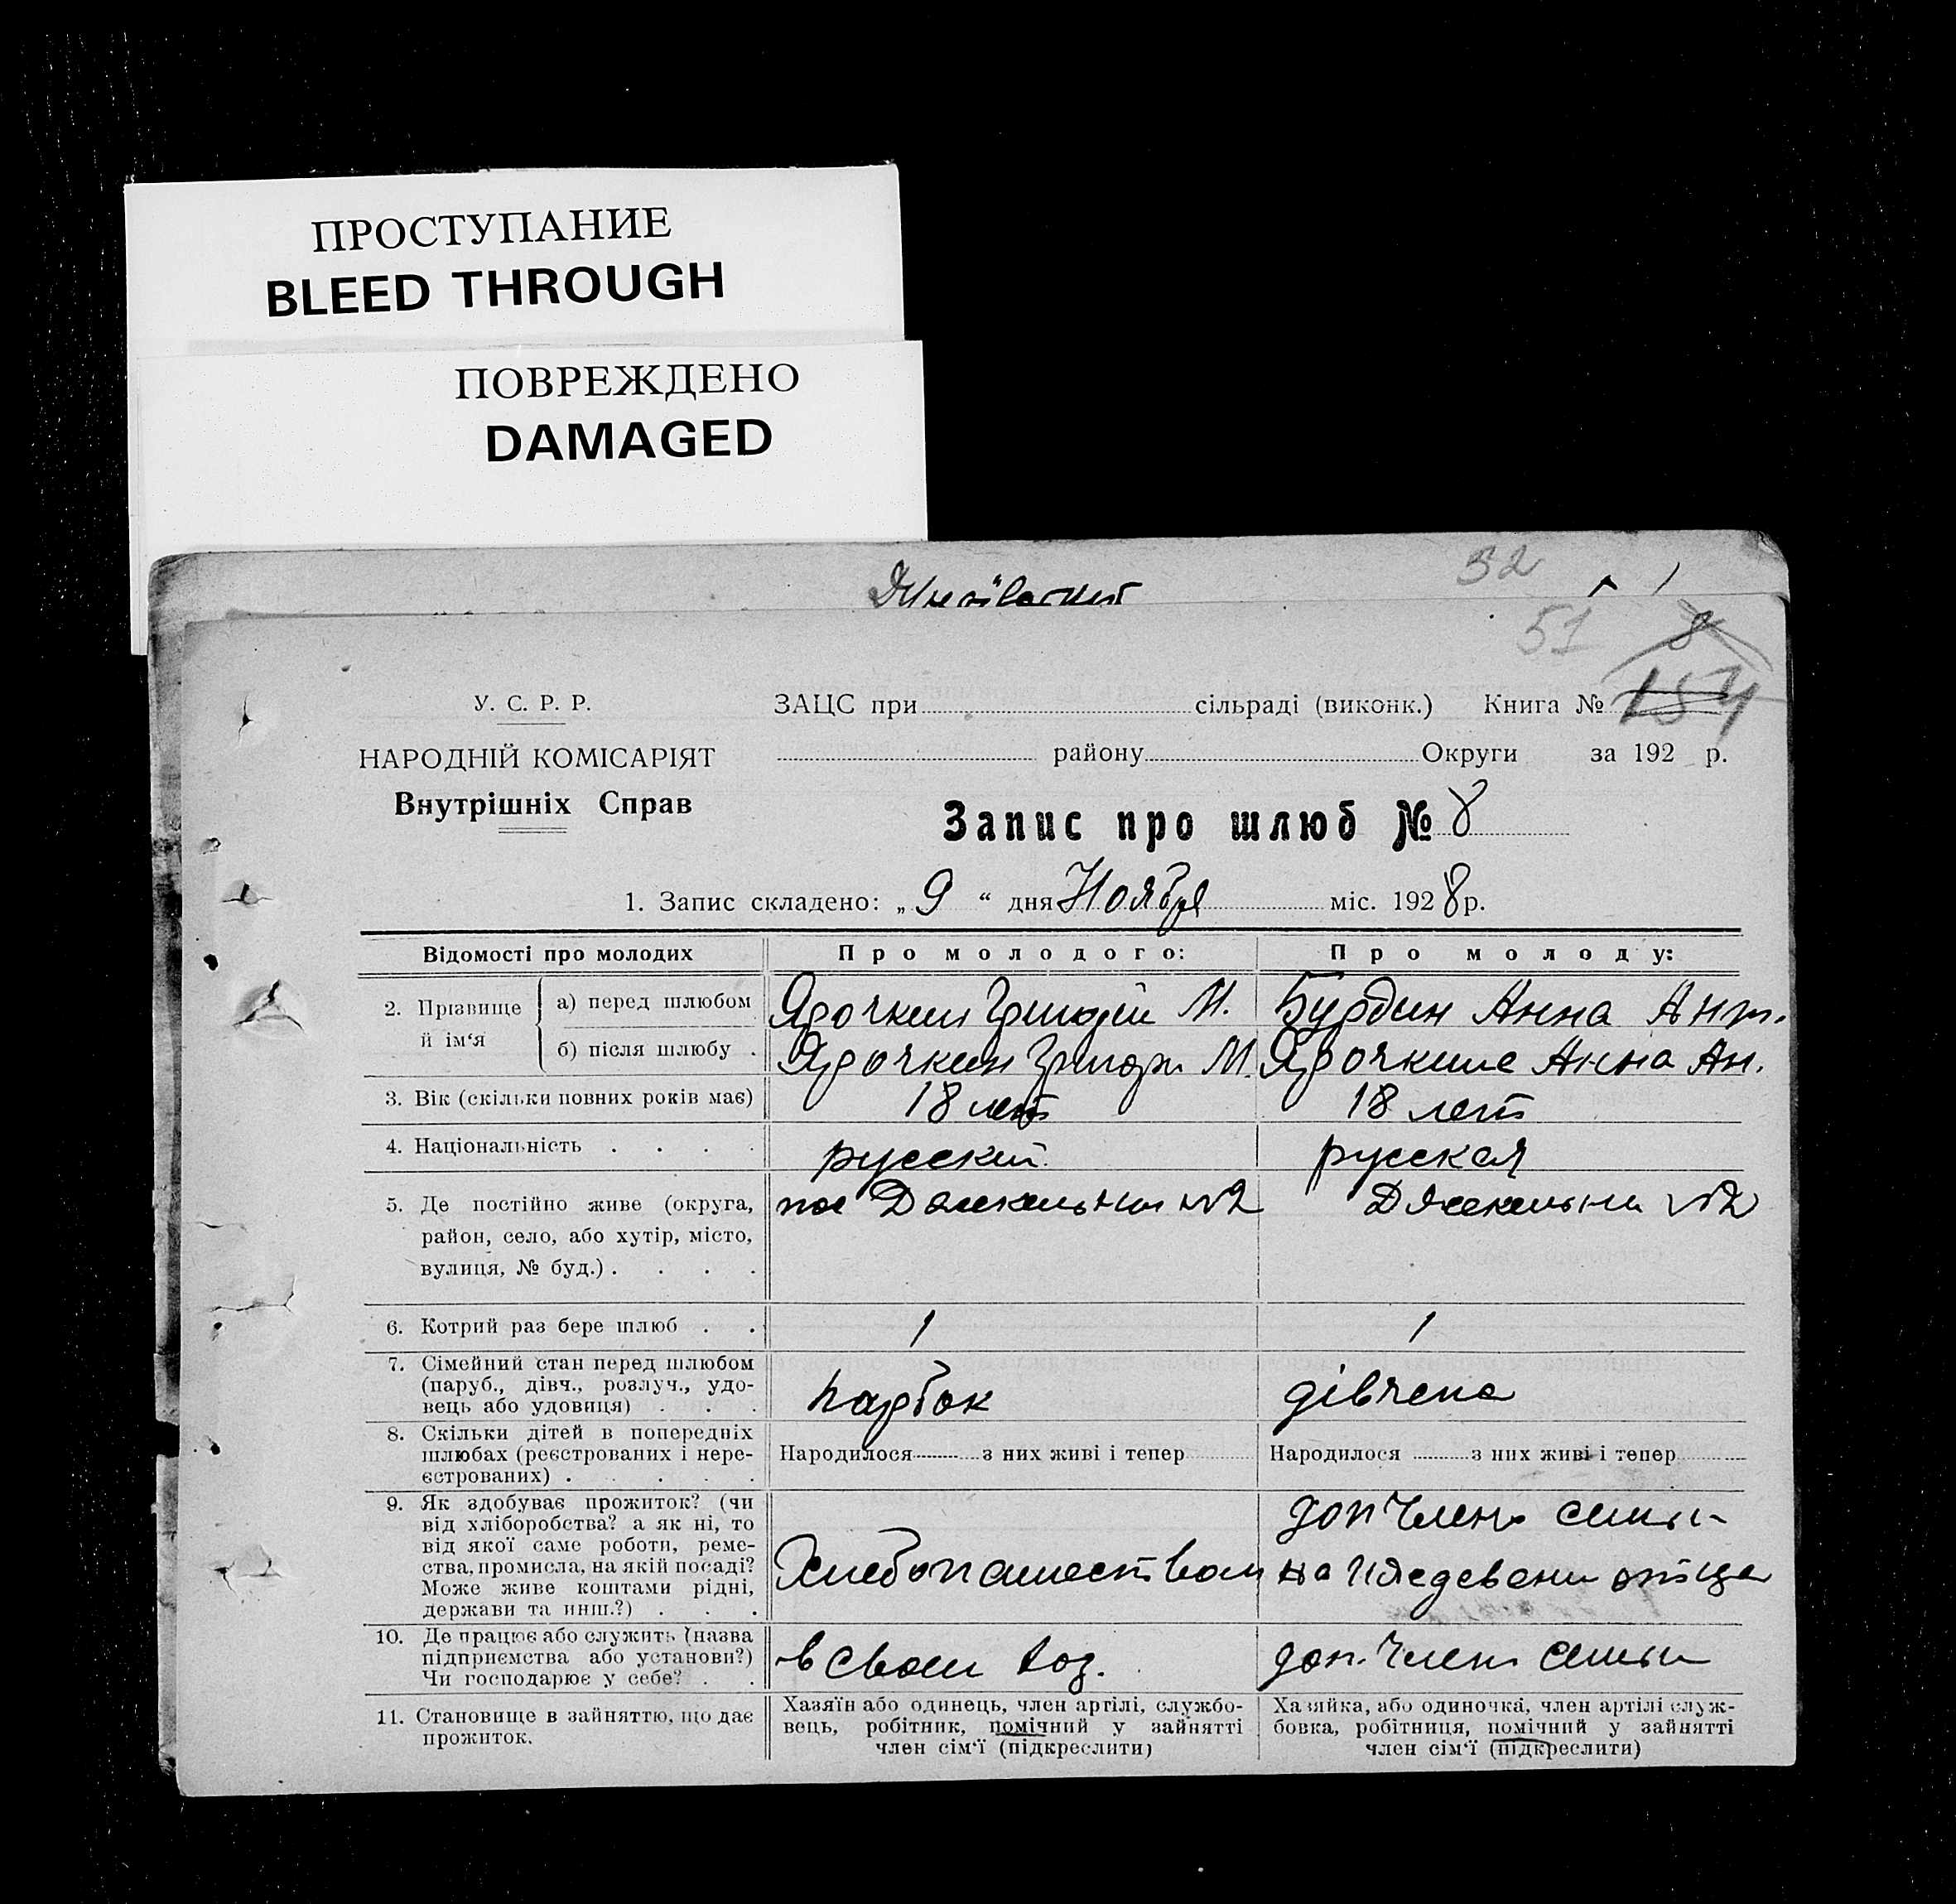 ПРОСТУПАНИЕ
BLEED THROUGH
ПОВРЕЖДЕНО
DAMAGED
32
51 8
У. С. Р. Р. ЗАЦС при сільраді (виконк.) Книга № 154
НАРОДНІЙ КОМІСАРІЯТ района району Округи за 192 р.
Внутрішніх Справ
Запис про шлюб № 8
1. Запис складено: „ 9 “ дня Ноября міс. 1928 р.
Відомості про молодих Про молодого: Про молоду:
2. Прізвище й ім‘я
а) перед шлюбом Ярочкин Григорий М. Бурдин Анна Ант.
б) після шлюбу . Ярочкин Григори М. Ярочкине Анна Ан.
3. Вік (скільки повних років має) 18 лет 18 лет
4. Національність . . . . русский русская
5. Де постійно живе (округа, пос №2 №2
район, село, або хутір, місто,
вулиця, № буд.) . . . .
6. Котрий раз бере шлюб . . 1 1
7. Сімейний стан перед шлюбом
(паруб., дівч., розлуч., удо-
вець або удовиця) . . . парбок дівчена
8. Скільки дітей в попередніх
шлюбах (реєстрованих і нере- Народилося з них живі і тепер Народилося з них живі і тепер
єстрованих) . . . . .
9. Як здобуває прожиток? (чи доп член семьи
від хліборобства? а як ні, то
від якої саме роботи, реме-
ства, промисла, на якій посаді? Хлебопашеством на отца
Може живе коштами рідні,
держави та инш.?) . . .
10. Де працює або служить (назва
підприємства або установи?) в своем хоз. доп. член семьи
Чи господарює у себе? . .
11. Становище в зайняттю, що дає
прожиток.
Хазяїн або одинець, член артілі, службо-
вець, робітник, помічний у зайнятті
член сім‘ї (підкреслити)
Хазяйка, або одиночка, член артілі служ-
бовка, робітниця, помічний у зайнятті
член сім‘ї (підкреслити)